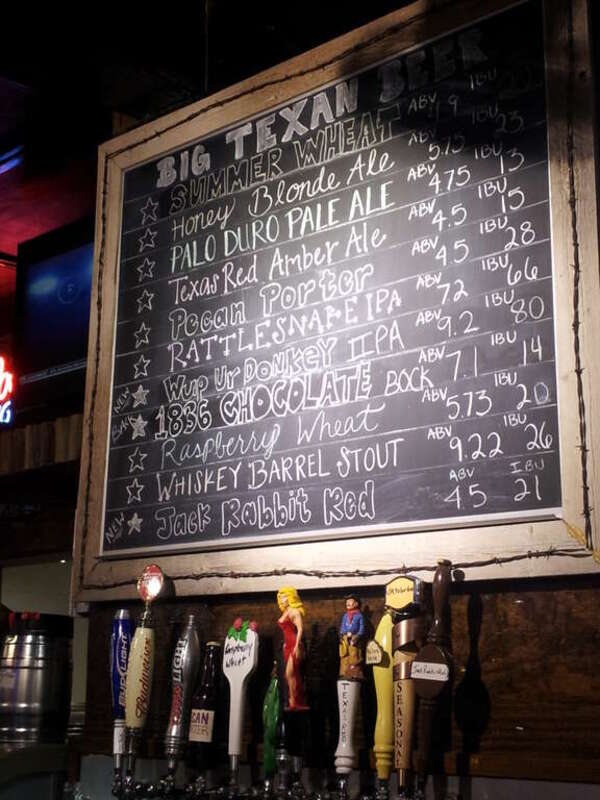 BIG TEXAN BEER
SUMMER WHEAT ABV IBU
Honey Blonde Ale ABV IBU 23
PALO DURO PALE ALE ABV 4.75 IBU 13
Texas Red Amber Ale ABV 4.5 IBU 15
Pecan Porter ABV 4.5 IBU 28
RATTLESNAKE IPA ABV 7.2 IBU 66
Wup Ur Donkey IIPA ABV 9.2 IBU 80
NEW BACK 1836 CHOCOLATE BOCK ABV 7.1 IBU 14
Raspberry Wheat ABV 5.73 IBU 20
WHISKEY BARREL STOUT ABV 9.22 IBU 26
NEW Jack Rabbit Red ABV 4.5 IBU 21
BUD LIGHT
Budweiser
COORS LIGHT
Raspberry Wheat
TEXAS RED
SEASONAL